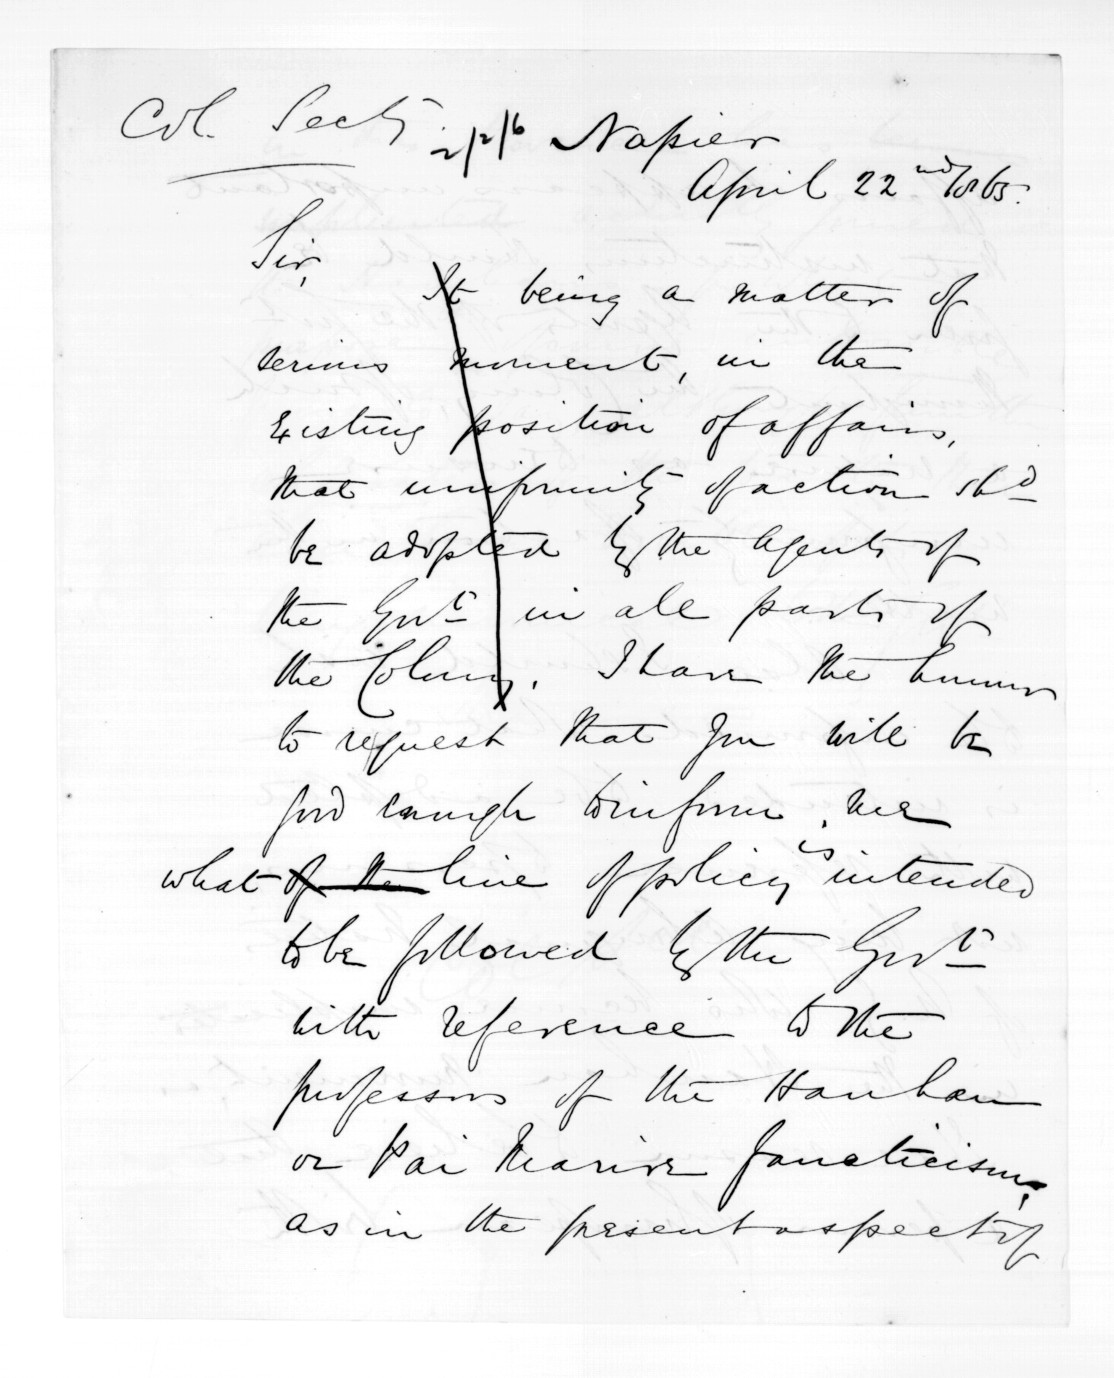 Col. Secty. 2/2/6 Napier
April 22nd/1865.
Sir,
It being a matter of
serious moment, in the
existing position of affairs,
that uniformity of action shd
be adopted by the Agents of
the Govt in all parts of
the Colony, I have the honour
to request that you will be
good enough to inform me
what of the line of policy is intended
to be followed by the Govt
with reference to the
professors of the Hau hau
or Pai Marire fanaticism,
as in the present aspect of